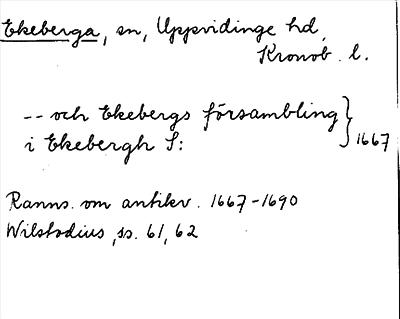 Ekeberga, sn, Uppvidinge hd,
Kronob. l.
-- och Ekebergs försambling
i Ekebergh S: 1667
Ranns. om antikv. 1667-1690
Wilstadius, ss. 61, 62